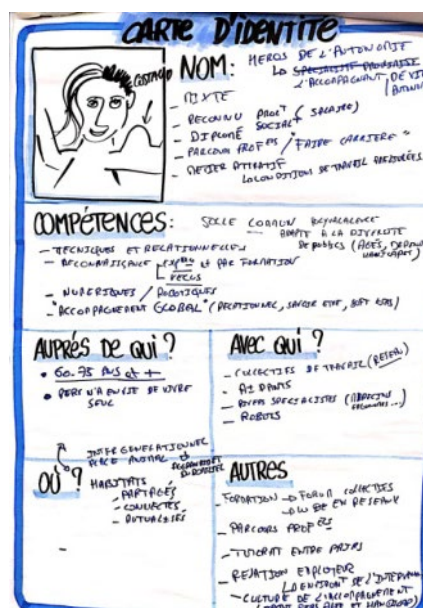 CARTE D'IDENTITE
COSTAUD
NOM: HEROS DE L'AUTONOMIE
L'ACCOMPAGNANT, DE VIE
- MIXTE
- RECONNU PROFt (SALAIRE)
SOCIALt
- DIPLOMÉ
- PARCOURS PROFES / "FAIRE CARRIERE"
- METIER ATTRATIF
CONDITIONS DE TRAVAIL
COMPÉTENCES: SOCLE COMMUN POLYVALENCE
ADAPTÉ A LA DIVERSITÉ
DE PUBLICS (AGES,
- TECNIQUES ET RELATIONNELLES
- RECONNAISSANCE ET PAR FORMATION
VECUS
- NUMERIQUES / ROBOTIQUES
- "ACCOMPAGNEMENT GLOBAL" (RELATIONNEL, SAVOIR ETRE,
AUPRÉS DE QUI ?
• 60.75 ANS et +
• PERS N'A ENVIE DE VIVRE
SEUL
AVEC QUI ?
- COLLECTIFS DE TRAVAIL (RESEAU)
- AIDANTS
- SPECIALISTES (MEDECINS
ERGONOMES...)
- ROBOTS
INTERGENERATIONNEL
PLACE ANIMAL
OÙ ?
HABITATS
- PARTAGÉS
- CONNECTÉS
- MUTUALISÉS
-
AUTRES
- FORMATION → FORUM COLLECTIFS
EN RESEAUX
- PARCOURS PROFELS
- TUTORAT ENTRE PAIRS
- RELATION EMPLOYEUR
- CULTURE DE L'ACCOMPAGNEMENT